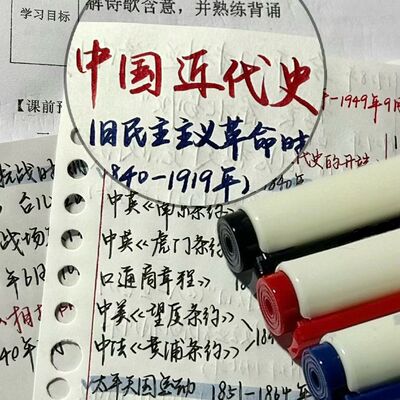 解诗歌含意，并熟练背诵
学习目标
中国近代史
-1949年9月
【课前预
旧民主主义革命时
840-1919年)
代史的开端
1840年
抗战时
战场
中英《南京条约》
中英《虎门条约》
口通商章程》
中美《望厦条约》
中法《黄浦条约》
年6月
相
40年
太平天国运动 1851-1864年